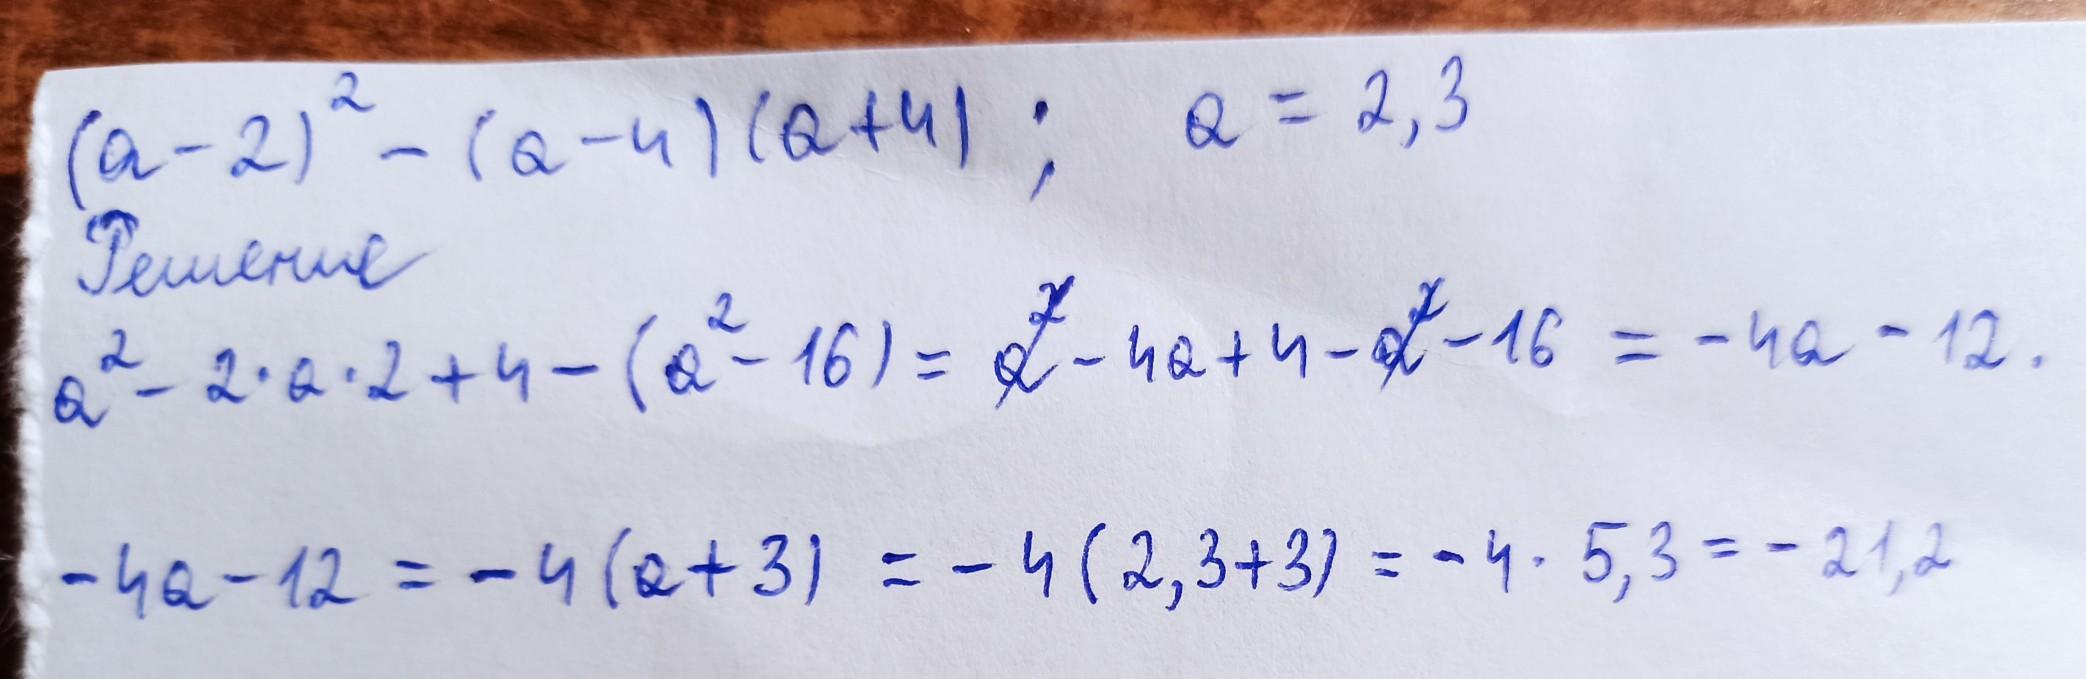 (a-2)² - (a-4)(a+4); a = 2,3
Решение
a² - 2·a·2 + 4 - (a² - 16) = a² - 4a + 4 - a² - 16 = -4a - 12.
-4a - 12 = -4(a+3) = -4(2,3+3) = -4·5,3 = -21,2